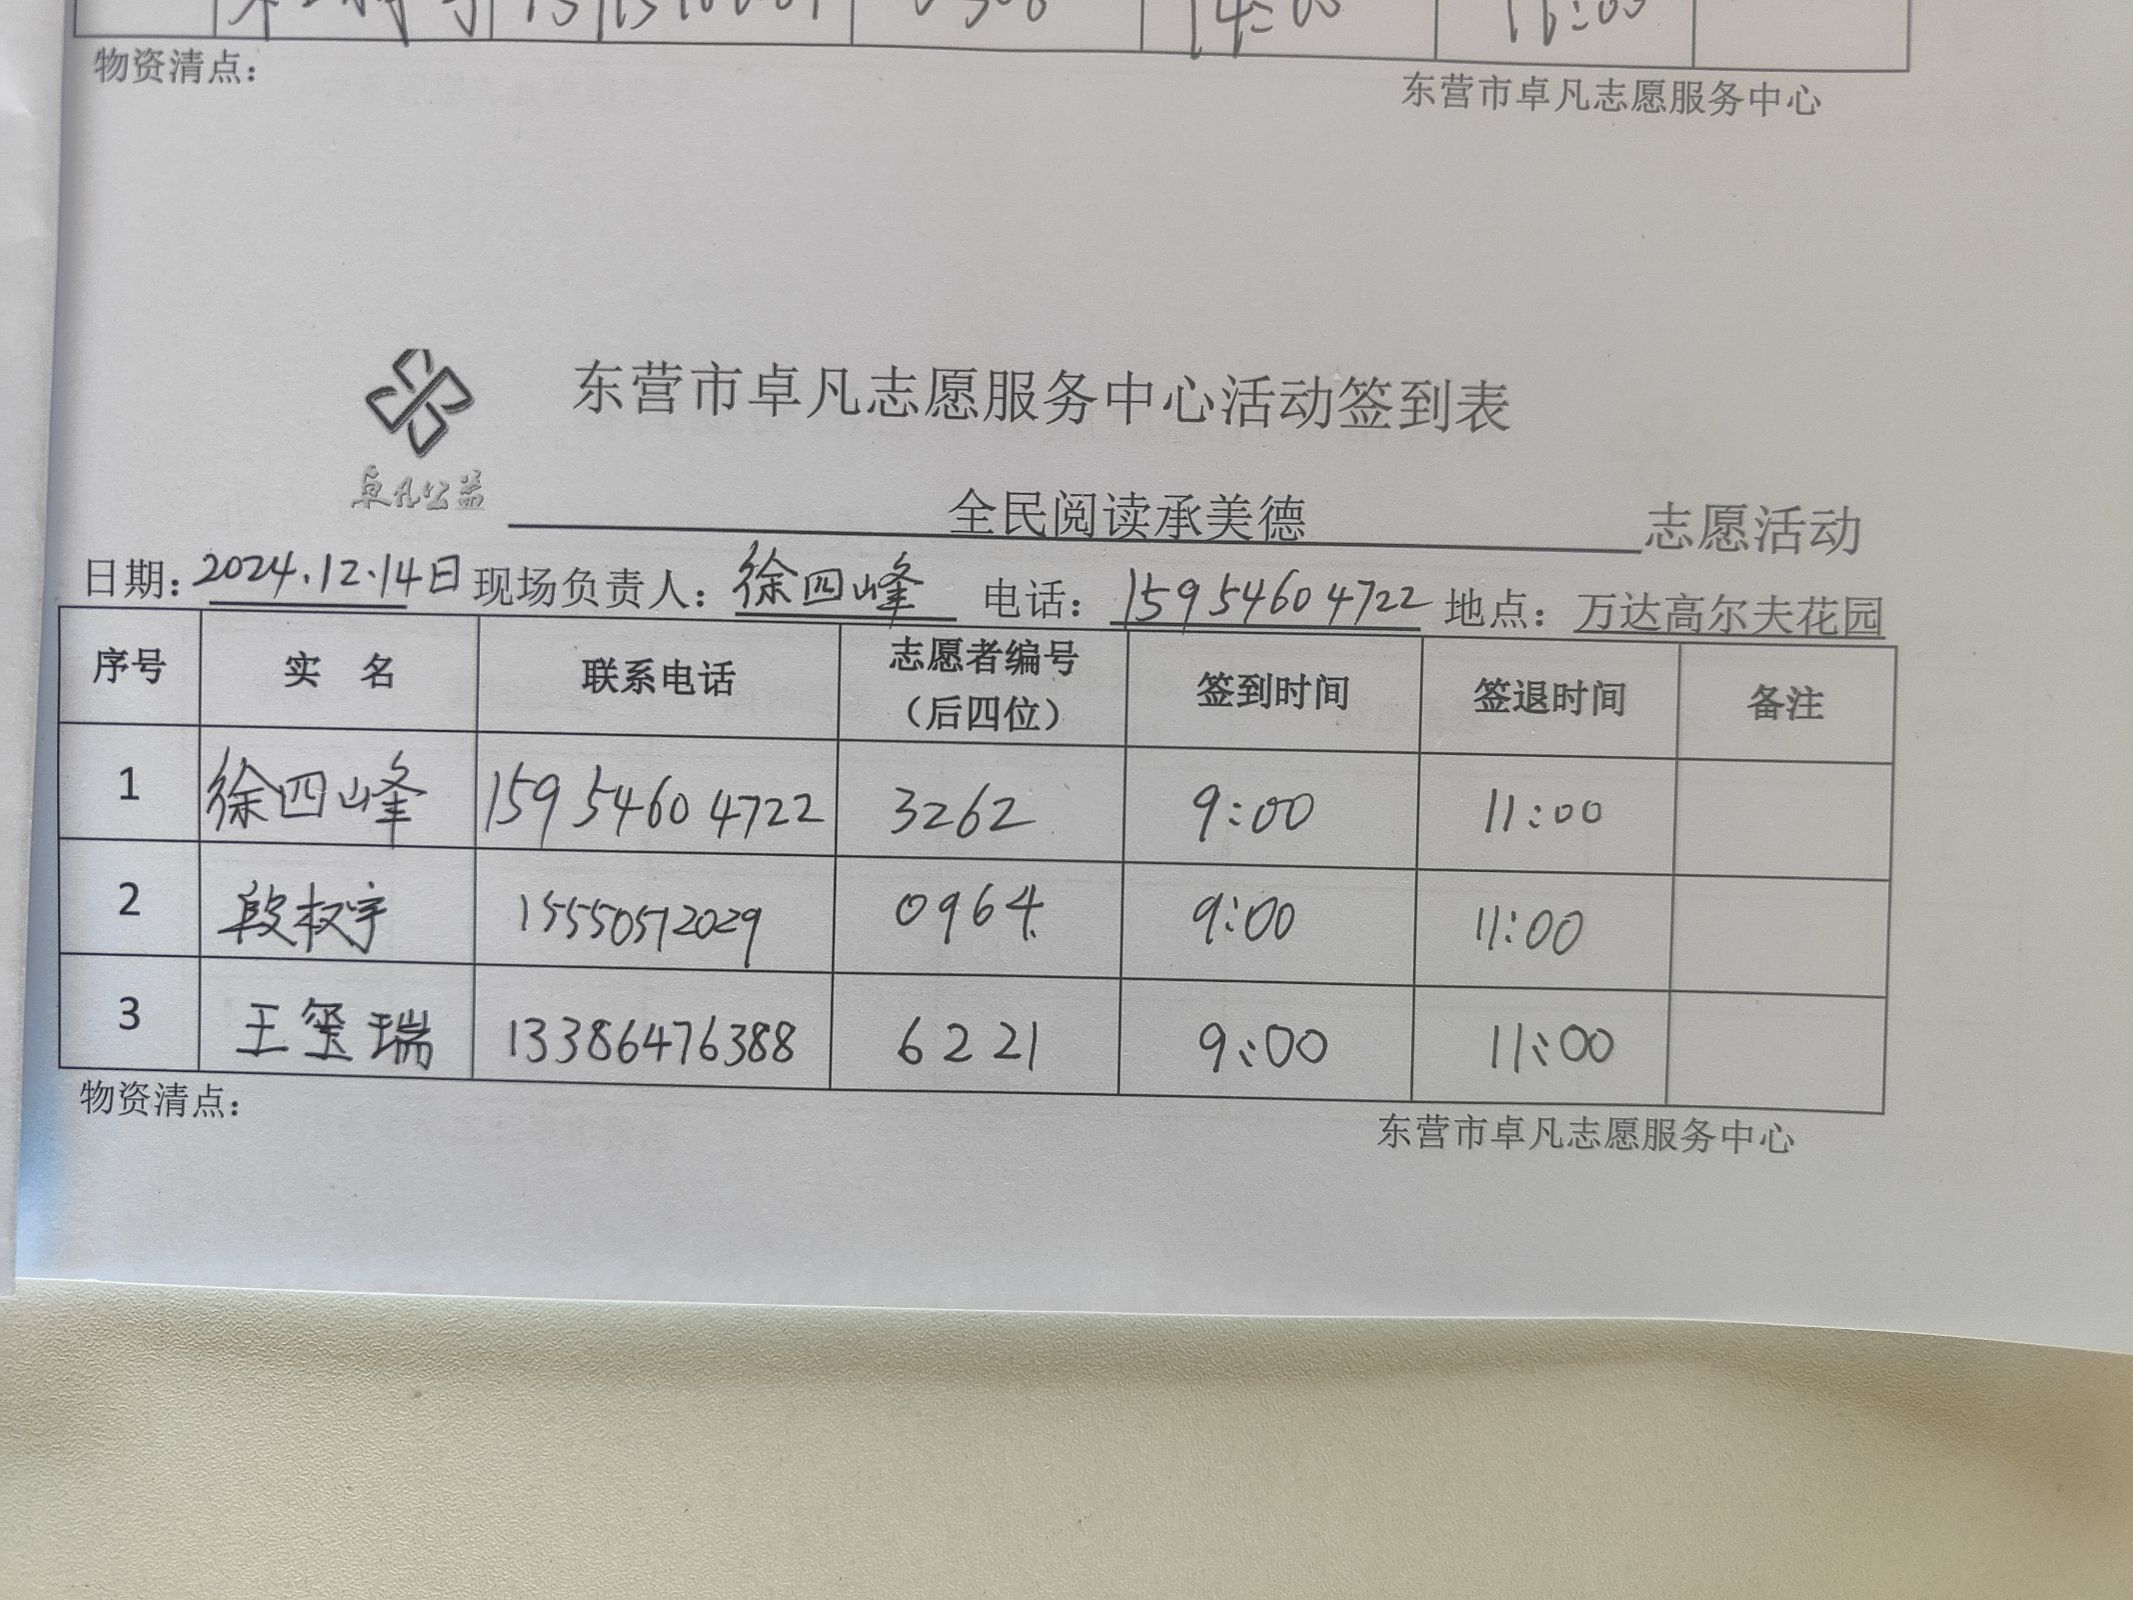 14:00 16:00
物资清点：
东营市卓凡志愿服务中心
东营市卓凡志愿服务中心活动签到表
卓凡公益
全民阅读承美德 志愿活动
日期：2024.12.14日 现场负责人：徐四峰 电话：15954604722 地点：万达高尔夫花园
序号 实 名 联系电话 志愿者编号（后四位） 签到时间 签退时间 备注
1 徐四峰 15954604722 3262 9:00 11:00
2 段权宇 15550572029 0964 9:00 11:00
3 王玺瑞 13386476388 6221 9:00 11:00
物资清点：
东营市卓凡志愿服务中心